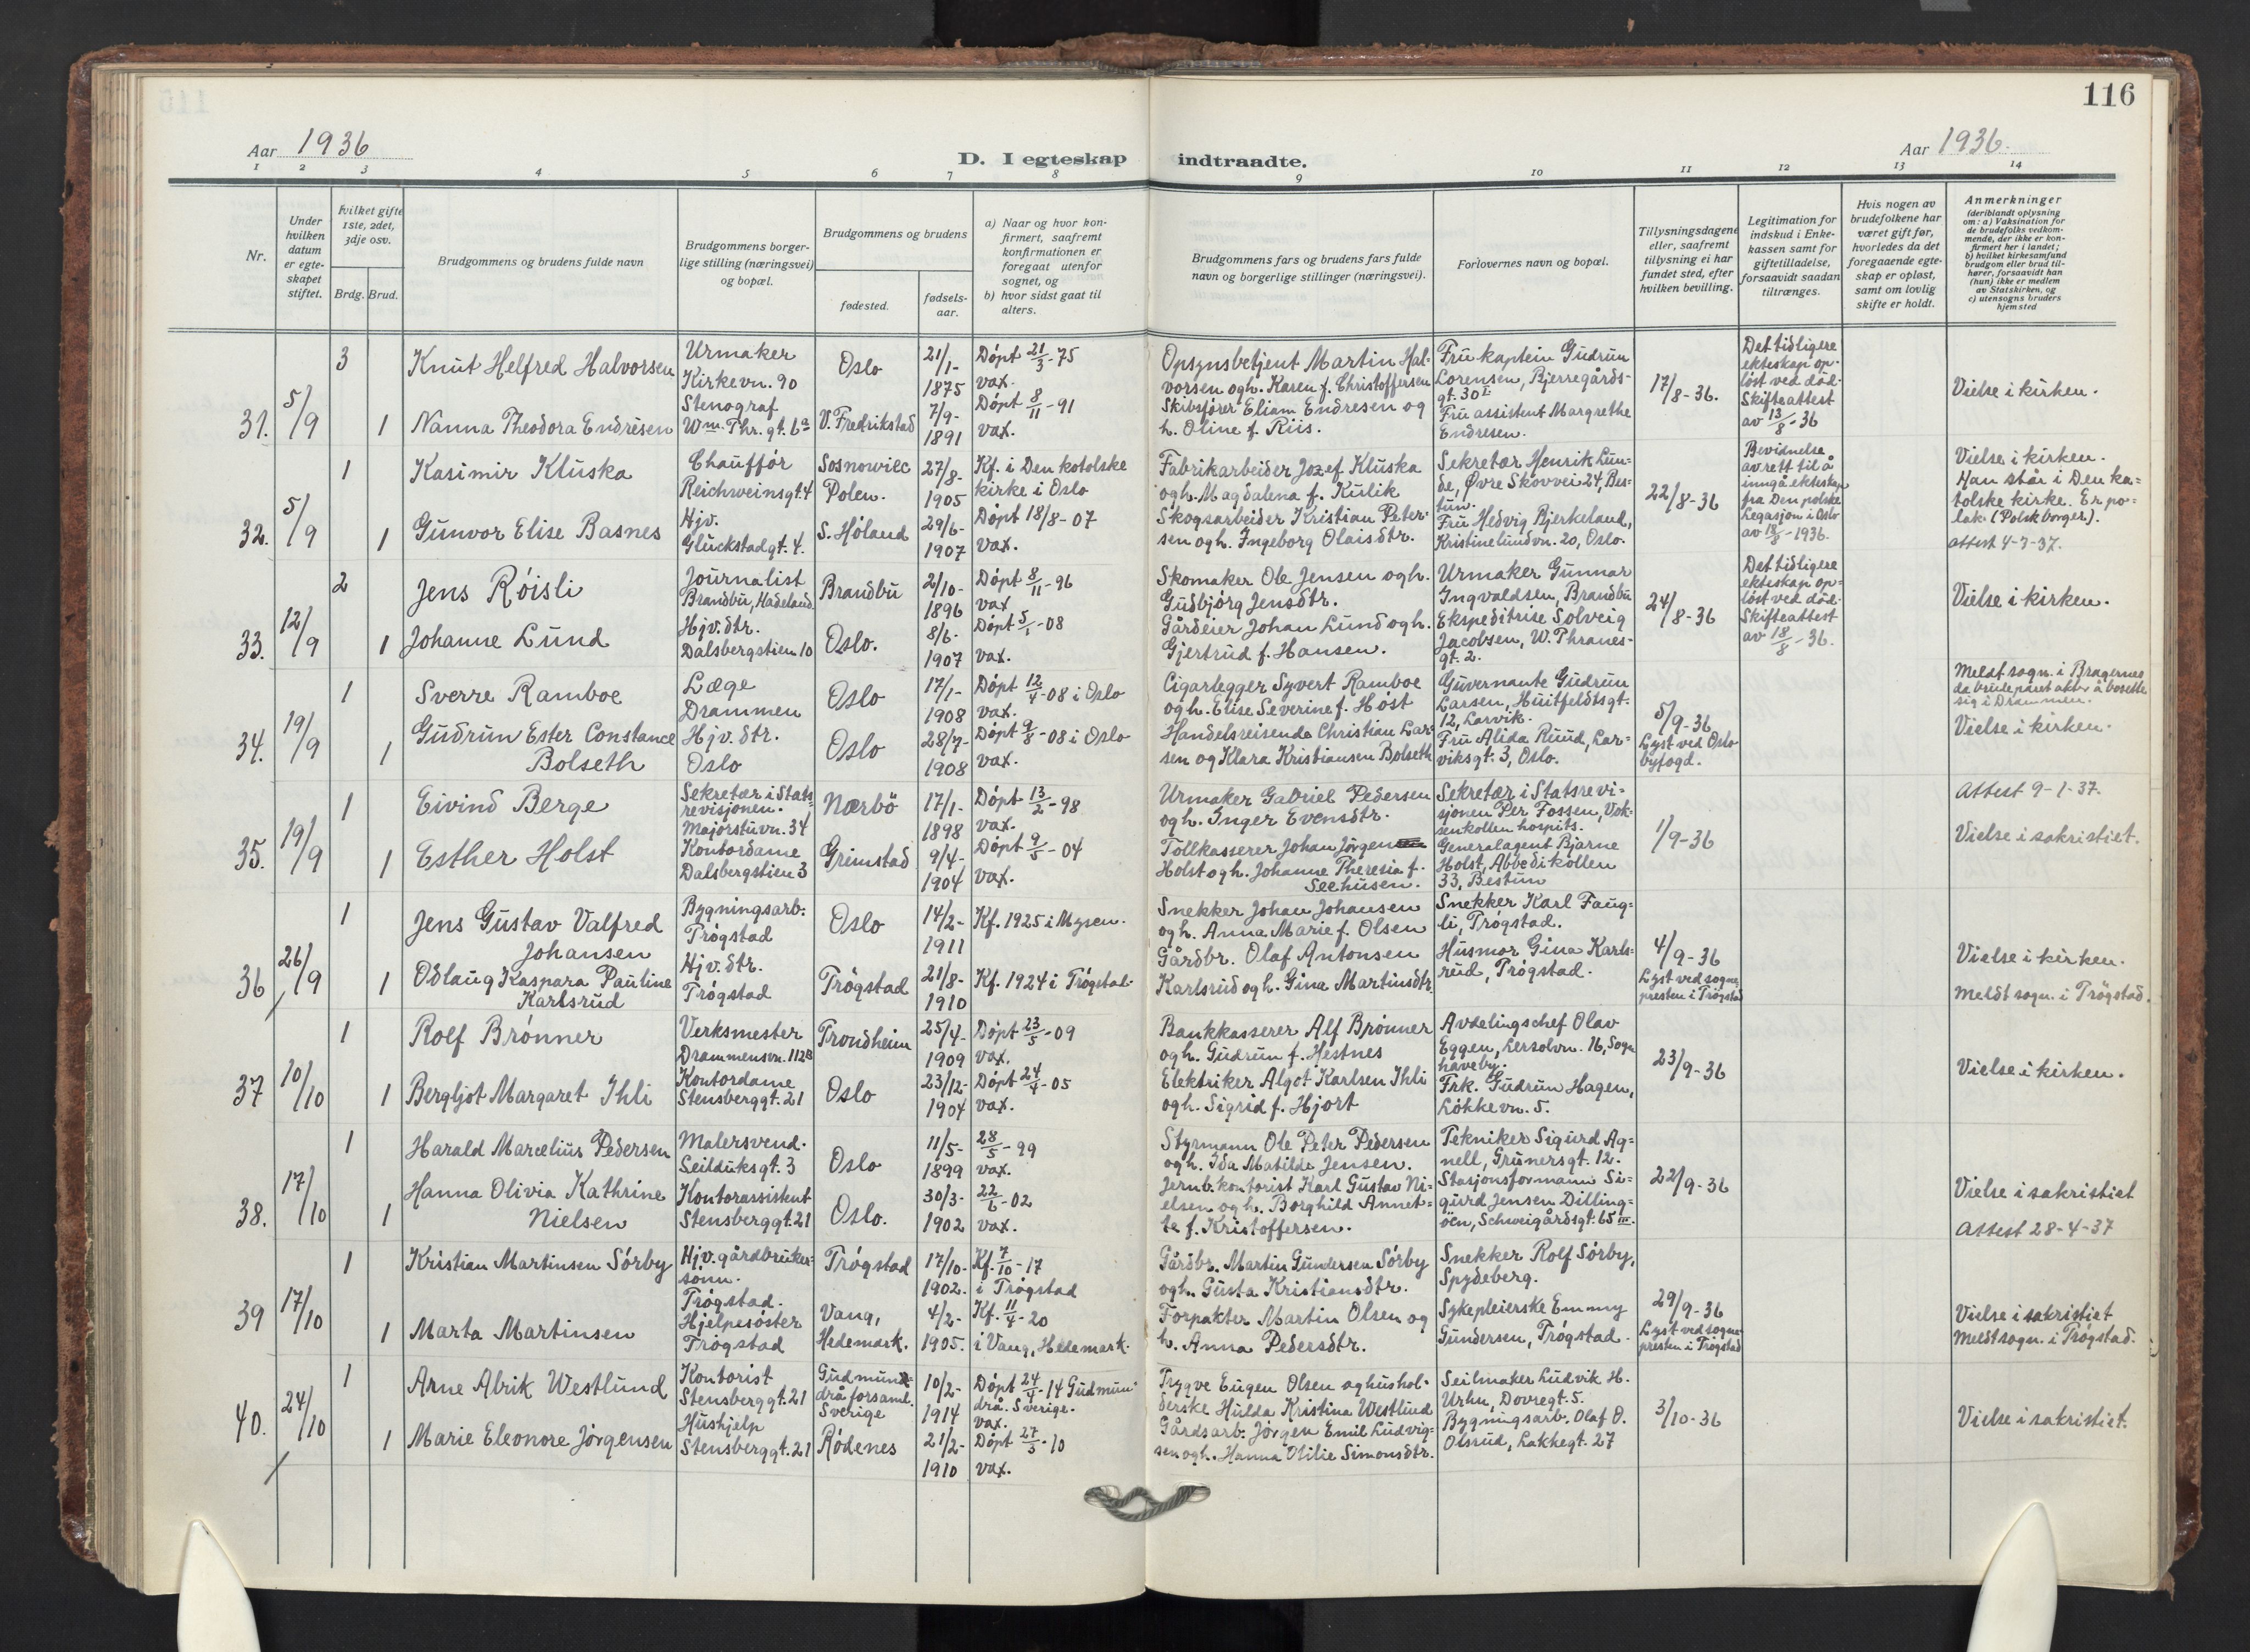 116
Aar 1936
D. I egteskap indtraadte.
Aar 1936.
1 2 3 4 5 6 7 8 9 10 11 12 13 14
Nr.
Under hvilken datum er egteskapet stiftet.
Hvilket gifte 1ste, 2det, 3dje osv.
Brdg. Brud.
Brudgommens og brudens fulde navn
Brudgommens borgerlige stilling (næringsvei) og bopæl.
Brudgommens og brudens
fødested.
fødselsaar.
a) Naar og hvor konfirmert, saafremt konfirmationen er foregaat utenfor sognet, og
b) hvor sidst gaat til alters.
Brudgommens fars og brudens fars fulde navn og borgerlige stillinger (næringsvei).
Forlovernes navn og bopæl.
Tillysningsdagene eller, saafremt tillysning ei har fundet sted, efter hvilken bevilling.
Legitimation for indskud i Enkekassen samt for giftetilladelse, forsaavidt saadan tiltrænges.
Hvis nogen av brudefolkene har været gift før, hvorledes da det foregaaende egteskap er opløst, samt om lovlig skifte er holdt.
Anmerkninger
(deriblandt oplysning om: a) Vaksination for de brudefolks vedkommende, der ikke er konfirmert her i landet; b) hvilket kirkesamfund brudgom eller brud tilhører, forsaavidt han (hun) ikke er medlem av Statskirken, og c) utensogns bruders hjemsted
31. 5/9
3 Knut Helfred Halvorsen
Urmaker Kirkevn. 90
Oslo
21/1-1875
Döpt 21/3-75 vax.
Opsynsbetjent Martin Halvorsen ogh. Karen f. Christoffersen
Fru kaptein Gudrun Lorensen, Bjerregårdsgt. 30 I
17/8-36.
Det tidligere ekteskap opløst ved död. Skifteattest av 13/8-36
Vielse i kirken.
1 Nanna Theodora Endresen
Stenograf Wm. Thr. gt. 6a
V. Fredrikstad
7/9-1891
Döpt 8/11-91 vax.
Skibsfører Eliam Endresen og h. Oline f. Riis.
Fru assistent Margrethe Endresen.
32. 5/9
1 Kasimir Kluska
Chauffór Reichweinsgt. 4
Sosnowiec Polen.
27/8-1905
Kf. i Den katolske kirke i Oslo
Fabrikarbeider Jozef Kluska ogh. Magdalena f. Kulik
Sekretær Henrik Lunde, Øvre Skovvei 24, Bestun.
22/8-36
Bevidnelse av rett til å inngå ekteskap fra Den polske Legasjon i Oslo av 18/8-1936.
Vielse i kirken.
Han står i Den katolske kirke. Er polak (Polsk borger).
attest 4-7-37.
1 Gunvor Elise Basnes
Hjv. Gluckstadgt. 4.
S. Höland
29/6-1907
Döpt 18/8-07 vax.
Skogsarbeider Kristian Petersen ogh. Ingeborg Olaisdtr.
Fru Hedvig Bjerkeland, Kristinelundvn. 20, Oslo.
33. 12/9
2 Jens Röisli
Journalist Brandbu, Hadeland
Brandbu
2/10-1896
Döpt 8/11-96 vax
Skomaker Ole Jensen ogh. Gudbjörg Jensdtr.
Urmaker Gunnar Ingvaldsen, Brandbu
24/8-36
Det tidligere ekteskap opløst ved död. Skifteattest av 18/8-36.
Vielse i kirken.
1 Johanne Lund
Hjv. dtr. Dalsbergstien 10
Oslo.
8/6-1907
Döpt 5/1-08 vax.
Gårdeier Johan Lund ogh. Gjertrud f. Hansen.
Ekspeditrise Solveig Jacobsen, W. Thranesgt. 2.
34. 19/9
1 Sverre Ramboe
Læge Drammen
Oslo
17/1-1908
Döpt 12/4-08 i Oslo vax.
Cigarlegger Syvert Ramboe ogh. Elise Severine f. Höst
Guvernante Gudrun Larsen, Huitfeldtsgt. 12, Larvik.
5/9-36 Lyst ved Oslo byfogd.
Meldt sogn. i Bragernes da brudeparet akter å bosette sig i Drammen.
Vielse i kirken.
1 Gudrun Ester Constance Bolseth
Hjv. dtr. Oslo
Oslo
28/7-1908
Döpt 9/8-08 i Oslo vax.
Handelsreisende Christian Larsen og Klara Kristiansen Bolseth
Fru Alida Ruud, Larviksgt. 3, Oslo.
35. 19/9
1 Eivind Berge
Sekretær i Statsrevisjonen. Majorstuvn. 34
Nærbö
17/1-1898
Döpt 13/2-98 vax.
Urmaker Gabriel Pedersen ogh. Inger Evensdtr.
Sekretær i Statsrevisjonen Per Fossen, Voksenkollen hospits.
1/9-36
Attest 9-1-37.
Vielse i sakristiet.
1 Esther Holst
Kontordame Dalsbergstien 3
Grimstad
9/4-1904
Döpt 9/5-04 vax.
Tollkasserer Johan Jörgen Holst ogh. Johanne Theresia f. Seehusen.
Generalagent Bjarne Holst, Abbedikollen 33, Bestun
36 26/9
1 Jens Gustav Valfred Johansen
Bygningsarb. Trögstad
Oslo
14/2-1911
Kf. 1925 i Mysen.
Snekker Johan Johansen ogh. Anna Marie f. Olsen
Snekker Karl Faugli, Trögstad.
4/9-36 Lyst ved sognepresten i Trögstad
Vielse i kirken.
Meldt sogn. i Trögstad.
1 Odlaug Kaspara Pauline Karlsrud
Hjv. dtr. Trögstad
Trögstad
21/8-1910
Kf. 1924 i Trögstad.
Gårdbr. Olaf Antonsen Karlsrud ogh. Gina Martinsdtr.
Husmor Gina Karlsrud, Trögstad.
37 10/10
1 Rolf Brönner
Verksmester Drammensvn. 112B
Trondheim
25/4-1909
Döpt 23/5-09 vax.
Bankkasserer Alf Brönner ogh. Gudrun f. Hestnes
Avdelingschef Olav Eggen, Lersolvn. 16, Sogn haveby.
23/9-36
Vielse i kirken.
1 Bergljot Margaret Ihli
Kontordame Stensberggt. 21
Oslo
23/12-1904
Döpt 24/4-05 vax.
Elektriker Algot Karlsen Ihli ogh. Sigrid f. Hjort
Frk. Gudrun Hagen, Lökkevn. 5.
38. 17/10
1 Harald Marcelius Pedersen
Malersvend. Seilduksgt. 3
Oslo
11/5-1899
28/5-99 vax.
Styrmann Ole Peter Pedersen ogh. Ida Matilde Jensen.
Tekniker Sigurd Agnell, Grünersgt. 12.
22/9-36
Vielse i sakristiet
Attest 28-4-37
1 Hanna Olivia Kathrine Nielsen
Kontorassistent Stensberggt. 21
Oslo.
30/3-1902
22/6-02 vax.
Jernb. kontorist Karl Gustav Nielsen ogh. Borghild Annette f. Kristoffersen.
Stasjonsformann Sigurd Jensen Dillingöen, Schweigårdsgt. 65 III.
39 17/10
1 Kristian Martinsen Sörby
Hjv. gårdbrukersönn. Trögstad.
Trögstad
17/10-1902.
Kf. 7/10-17 i Trögstad
Gårdbr. Martin Gundersen Sörby ogh. Gusta Kristiansdtr.
Snekker Rolf Sörby, Spydeberg.
29/9-36 Lyst ved sognepresten i Trögstad
Vielse i sakristiet
Meldt sogn. i Trögstad.
1 Marta Martinsen
Hjelpesöster Trögstad
Vang, Hedemark.
4/2-1905.
Kf. 11/4-20 i Vang, Hedemark.
Forpakter Martin Olsen og h. Anna Pedersdtr.
Sykepleierske Emmy Gundersen, Trögstad.
40. 24/10
1 Arne Alrik Westlund
Kontorist Stensberggt. 21
Gudmundrå forsaml. Sverige
10/2-1914
Döpt 24/4-14 Gudmundrå. Sverige. vax.
Trygve Eugen Olsen og husholderske Hulda Kristina Westlund
Seilmaker Ludvik H. Urhn, Dovregt. 5.
3/10-36
Vielse i sakristiet.
1 Marie Eleonore Jörgensen
Hushjelp Stensberggt. 21
Rödenes
21/2-1910
Döpt 27/3-10 vax.
Gårdsarb. Jörgen Emil Ludvigsen ogh. Hanna Otilie Simonsdtr.
Bygningsarb. Olaf O. Olsrud, Lakkegt. 27